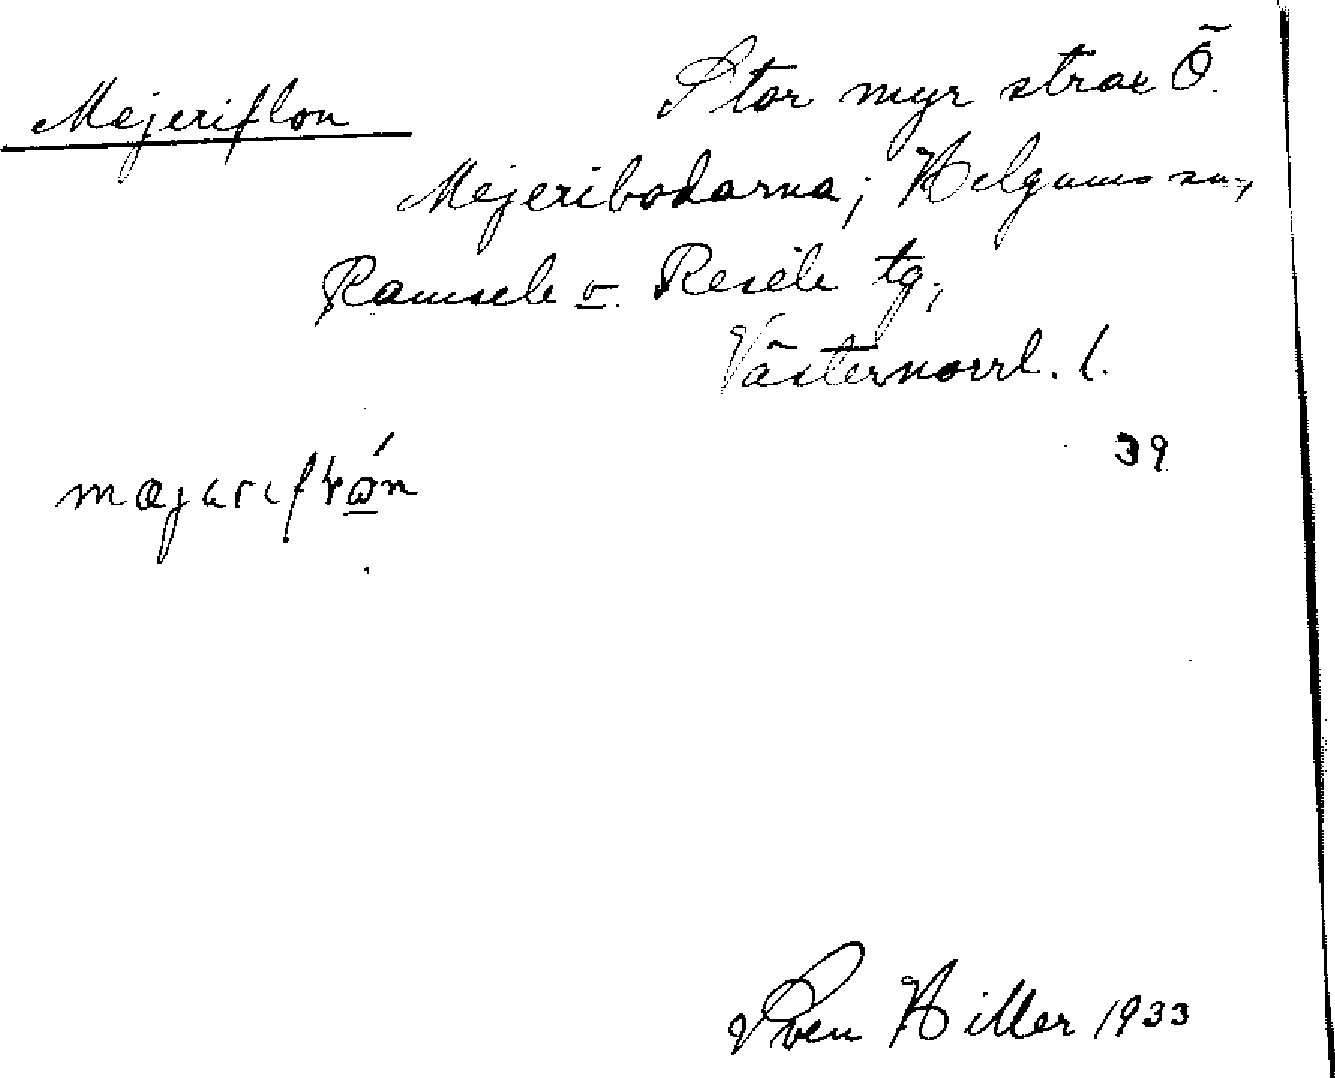 Mejeriflon
Stor myr strax Ö.
Mejeribodarna; Helgums sn,
Ramsele o. Resele tg,
Västernorrl. l.
39
Sven Hiller 1933